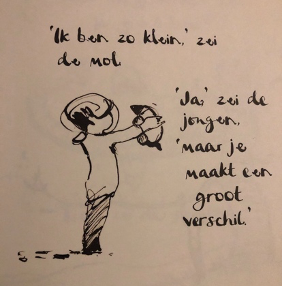 'Ik ben zo klein,' zei
de mol.
'Ja,' zei de
jongen,
'maar je
maakt een
groot
verschil.'